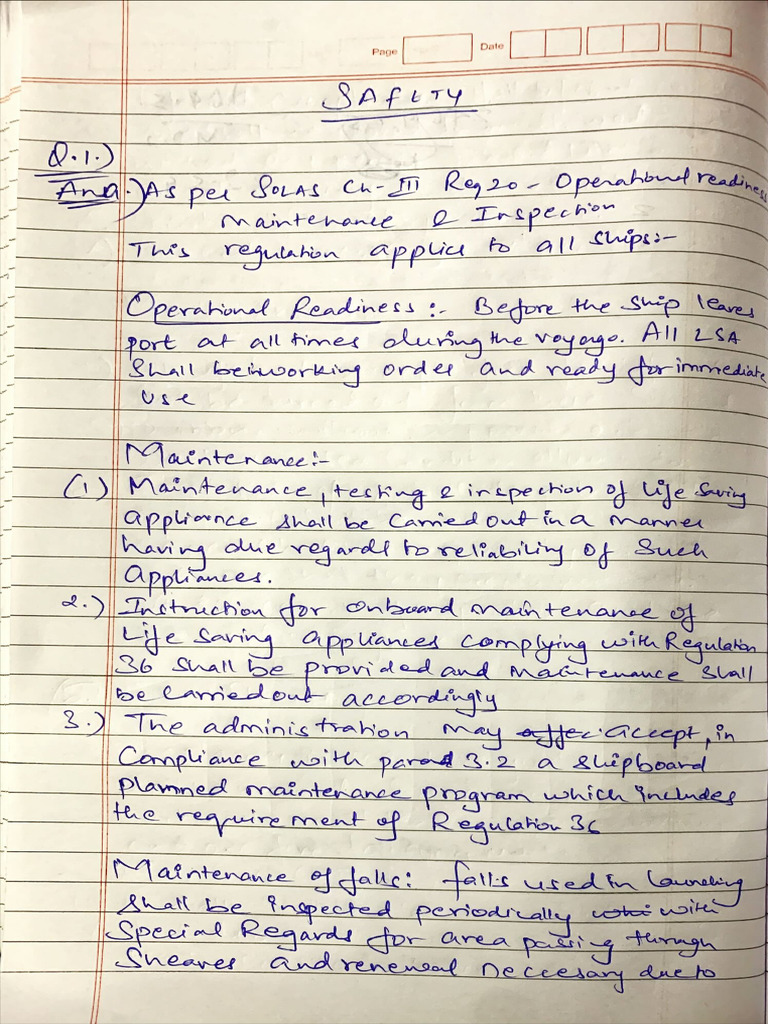 Page Date
SAFETY
Q.1.)
Ans.) As per SOLAS Ch-III Reg 20 - Operational readiness
Maintenance & Inspection
This regulation applies to all ships:-
Operational Readiness :- Before the ship leaves
port at all times during the voyage. All LSA
Shall be in working order and ready for immediate
use
Maintenance:-
(1) Maintenance, testing & inspection of life saving
appliance shall be carried out in a manner
having due regards to reliability of such
appliances.
2.) Instruction for onboard maintenance of
Life Saving appliances complying with Regulation
36 shall be provided and maintenance shall
be carried out accordingly
3.) The administration may accept, in
Compliance with para 3.2 a shipboard
planned maintenance program which includes
the requirement of Regulation 36
Maintenance of falls: falls used in launching
shall be inspected periodically with
Special Regards for area passing through
Sheaves and renewal neccesary due to